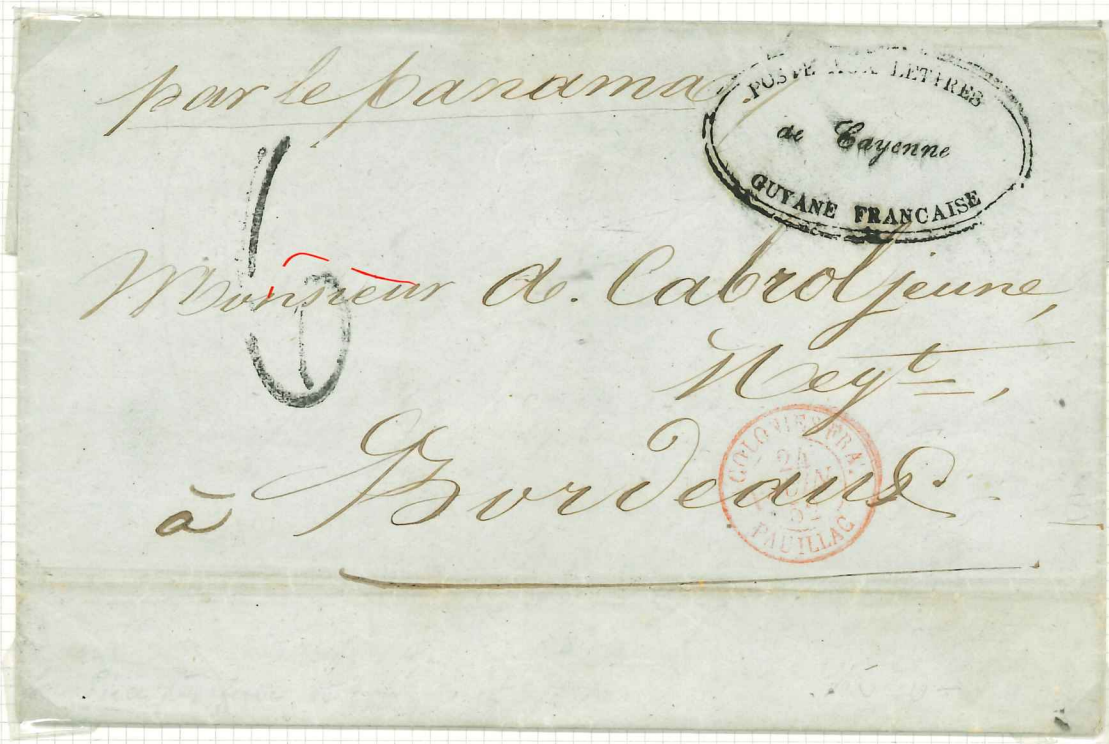 par le panama
POSTE AUX LETTRES
de Cayenne
GUYANE FRANCAISE
6
Monsieur A. Cabrol jeune,
Negt,
à Bordeaux
COLONIES FRA.
24
JUIN
52
PAUILLAC